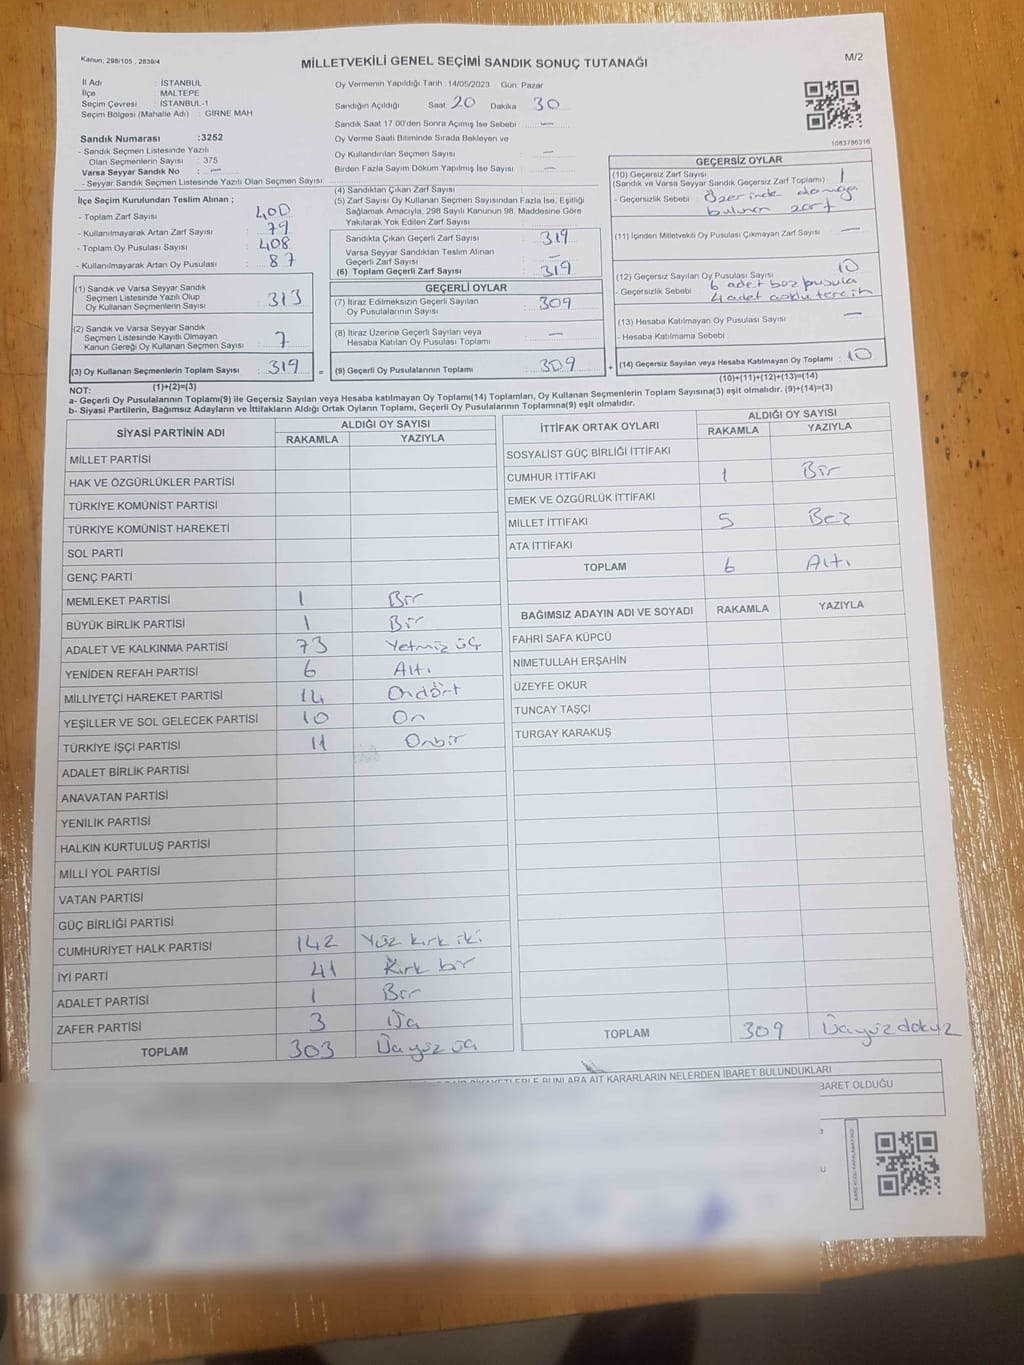 Kanun, 298/105 , 2839/4
MİLLETVEKİLİ GENEL SEÇİMİ SANDIK SONUÇ TUTANAĞI
M/2
İl Adı : İSTANBUL
İlçe : MALTEPE
Seçim Çevresi : İSTANBUL-1
Seçim Bölgesi (Mahalle Adı) : GİRNE MAH
Sandık Numarası :3252
- Sandık Seçmen Listesinde Yazılı
Olan Seçmenlerin Sayısı : 375
Varsa Seyyar Sandık No : —
- Seyyar Sandık Seçmen Listesinde Yazılı Olan Seçmen Sayısı:
Oy Vermenin Yapıldığı Tarih :14/05/2023 Gün: Pazar
Sandığın Açıldığı Saat: 20 Dakika : 30
Sandık Saat 17.00'den Sonra Açımış İse Sebebi : —
Oy Verme Saati Bitiminde Sırada Bekleyen ve
Oy Kullandırılan Seçmen Sayısı : —
Birden Fazla Sayım Döküm Yapılmış İse Sayısı : —
1083786316
İlçe Seçim Kurulundan Teslim Alınan ;
- Toplam Zarf Sayısı : 400
- Kullanılmayarak Artan Zarf Sayısı : 79
- Toplam Oy Pusulası Sayısı : 408
- Kullanılmayarak Artan Oy Pusulası : 87
(1) Sandık ve Varsa Seyyar Sandık
Seçmen Listesinde Yazılı Olup
Oy Kullanan Seçmenlerin Sayısı : 313
(2) Sandık ve Varsa Seyyar Sandık
Seçmen Listesinde Kayıtlı Olmayan
Kanun Gereği Oy Kullanan Seçmen Sayısı : 7
(3) Oy Kullanan Seçmenlerin Toplam Sayısı : 319
(1)+(2)=(3)
(4) Sandıktan Çıkan Zarf Sayısı :
(5) Zarf Sayısı Oy Kullanan Seçmen Sayısından Fazla İse, Eşitliği
Sağlamak Amacıyla, 298 Sayılı Kanunun 98. Maddesine Göre
Yakılarak Yok Edilen Zarf Sayısı:
Sandıkta Çıkan Geçerli Zarf Sayısı : 319
Varsa Seyyar Sandıktan Teslim Alınan
Geçerli Zarf Sayısı : —
(6) Toplam Geçerli Zarf Sayısı : 319
GEÇERLİ OYLAR
(7) İtiraz Edilmeksizin Geçerli Sayılan
Oy Pusulalarının Sayısı : 309
(8) İtiraz Üzerine Geçerli Sayılan veya
Hesaba Katılan Oy Pusulası Toplamı : —
= (9) Geçerli Oy Pusulalarının Toplamı : 309
GEÇERSİZ OYLAR
(10) Geçersiz Zarf Sayısı
(Sandık ve Varsa Seyyar Sandık Geçersiz Zarf Toplamı) : 1
- Geçersizlik Sebebi : Üzerinde damga
bulunan zarf
(11) İçinden Milletvekili Oy Pusulası Çıkmayan Zarf Sayısı : —
(12) Geçersiz Sayılan Oy Pusulası Sayısı : 10
- Geçersizlik Sebebi : 6 adet boş pusula
4 adet çoklu tercih
(13) Hesaba Katılmayan Oy Pusulası Sayısı : —
- Hesaba Katılmama Sebebi :
+ (14) Geçersiz Sayılan veya Hesaba Katılmayan Oy Toplamı : 10
(10)+(11)+(12)+(13)=(14)
NOT:
a- Geçerli Oy Pusulalarının Toplamı(9) ile Geçersiz Sayılan veya Hesaba katılmayan Oy Toplamı(14) Toplamları, Oy Kullanan Seçmenlerin Toplam Sayısına(3) eşit olmalıdır. (9)+(14)=(3)
b- Siyasi Partilerin, Bağımsız Adayların ve İttifakların Aldığı Ortak Oyların Toplamı, Geçerli Oy Pusulalarının Toplamına(9) eşit olmalıdır.
SİYASİ PARTİNİN ADI ALDIĞI OY SAYISI
RAKAMLA YAZIYLA
MİLLET PARTİSİ
HAK VE ÖZGÜRLÜKLER PARTİSİ
TÜRKİYE KOMÜNİST PARTİSİ
TÜRKİYE KOMÜNİST HAREKETİ
SOL PARTİ
GENÇ PARTİ
MEMLEKET PARTİSİ 1 Bir
BÜYÜK BİRLİK PARTİSİ 1 Bir
ADALET VE KALKINMA PARTİSİ 73 Yetmiş üç
YENİDEN REFAH PARTİSİ 6 Altı
MİLLİYETÇİ HAREKET PARTİSİ 14 Ondört
YEŞİLLER VE SOL GELECEK PARTİSİ 10 On
TÜRKİYE İŞÇİ PARTİSİ 11 Onbir
ADALET BİRLİK PARTİSİ
ANAVATAN PARTİSİ
YENİLİK PARTİSİ
HALKIN KURTULUŞ PARTİSİ
MİLLİ YOL PARTİSİ
VATAN PARTİSİ
GÜÇ BİRLİĞİ PARTİSİ
CUMHURİYET HALK PARTİSİ 142 Yüz kırk iki
İYİ PARTİ 41 Kırk bir
ADALET PARTİSİ 1 Bir
ZAFER PARTİSİ 3 Üç
TOPLAM 303 Üçyüz üç
İTTİFAK ORTAK OYLARI ALDIĞI OY SAYISI
RAKAMLA YAZIYLA
SOSYALİST GÜÇ BİRLİĞİ İTTİFAKI
CUMHUR İTTİFAKI 1 Bir
EMEK VE ÖZGÜRLÜK İTTİFAKI
MİLLET İTTİFAKI 5 Beş
ATA İTTİFAKI
TOPLAM 6 Altı
BAĞIMSIZ ADAYIN ADI VE SOYADI RAKAMLA YAZIYLA
FAHRİ SAFA KÜPCÜ
NİMETULLAH ERŞAHİN
ÜZEYFE OKUR
TUNCAY TAŞÇI
TURGAY KARAKUŞ
TOPLAM 309 Üçyüz dokuz
BUNLARA AİT KARARLARIN NELERDEN İBARET BULUNDUKLARI
BARET OLDUĞU